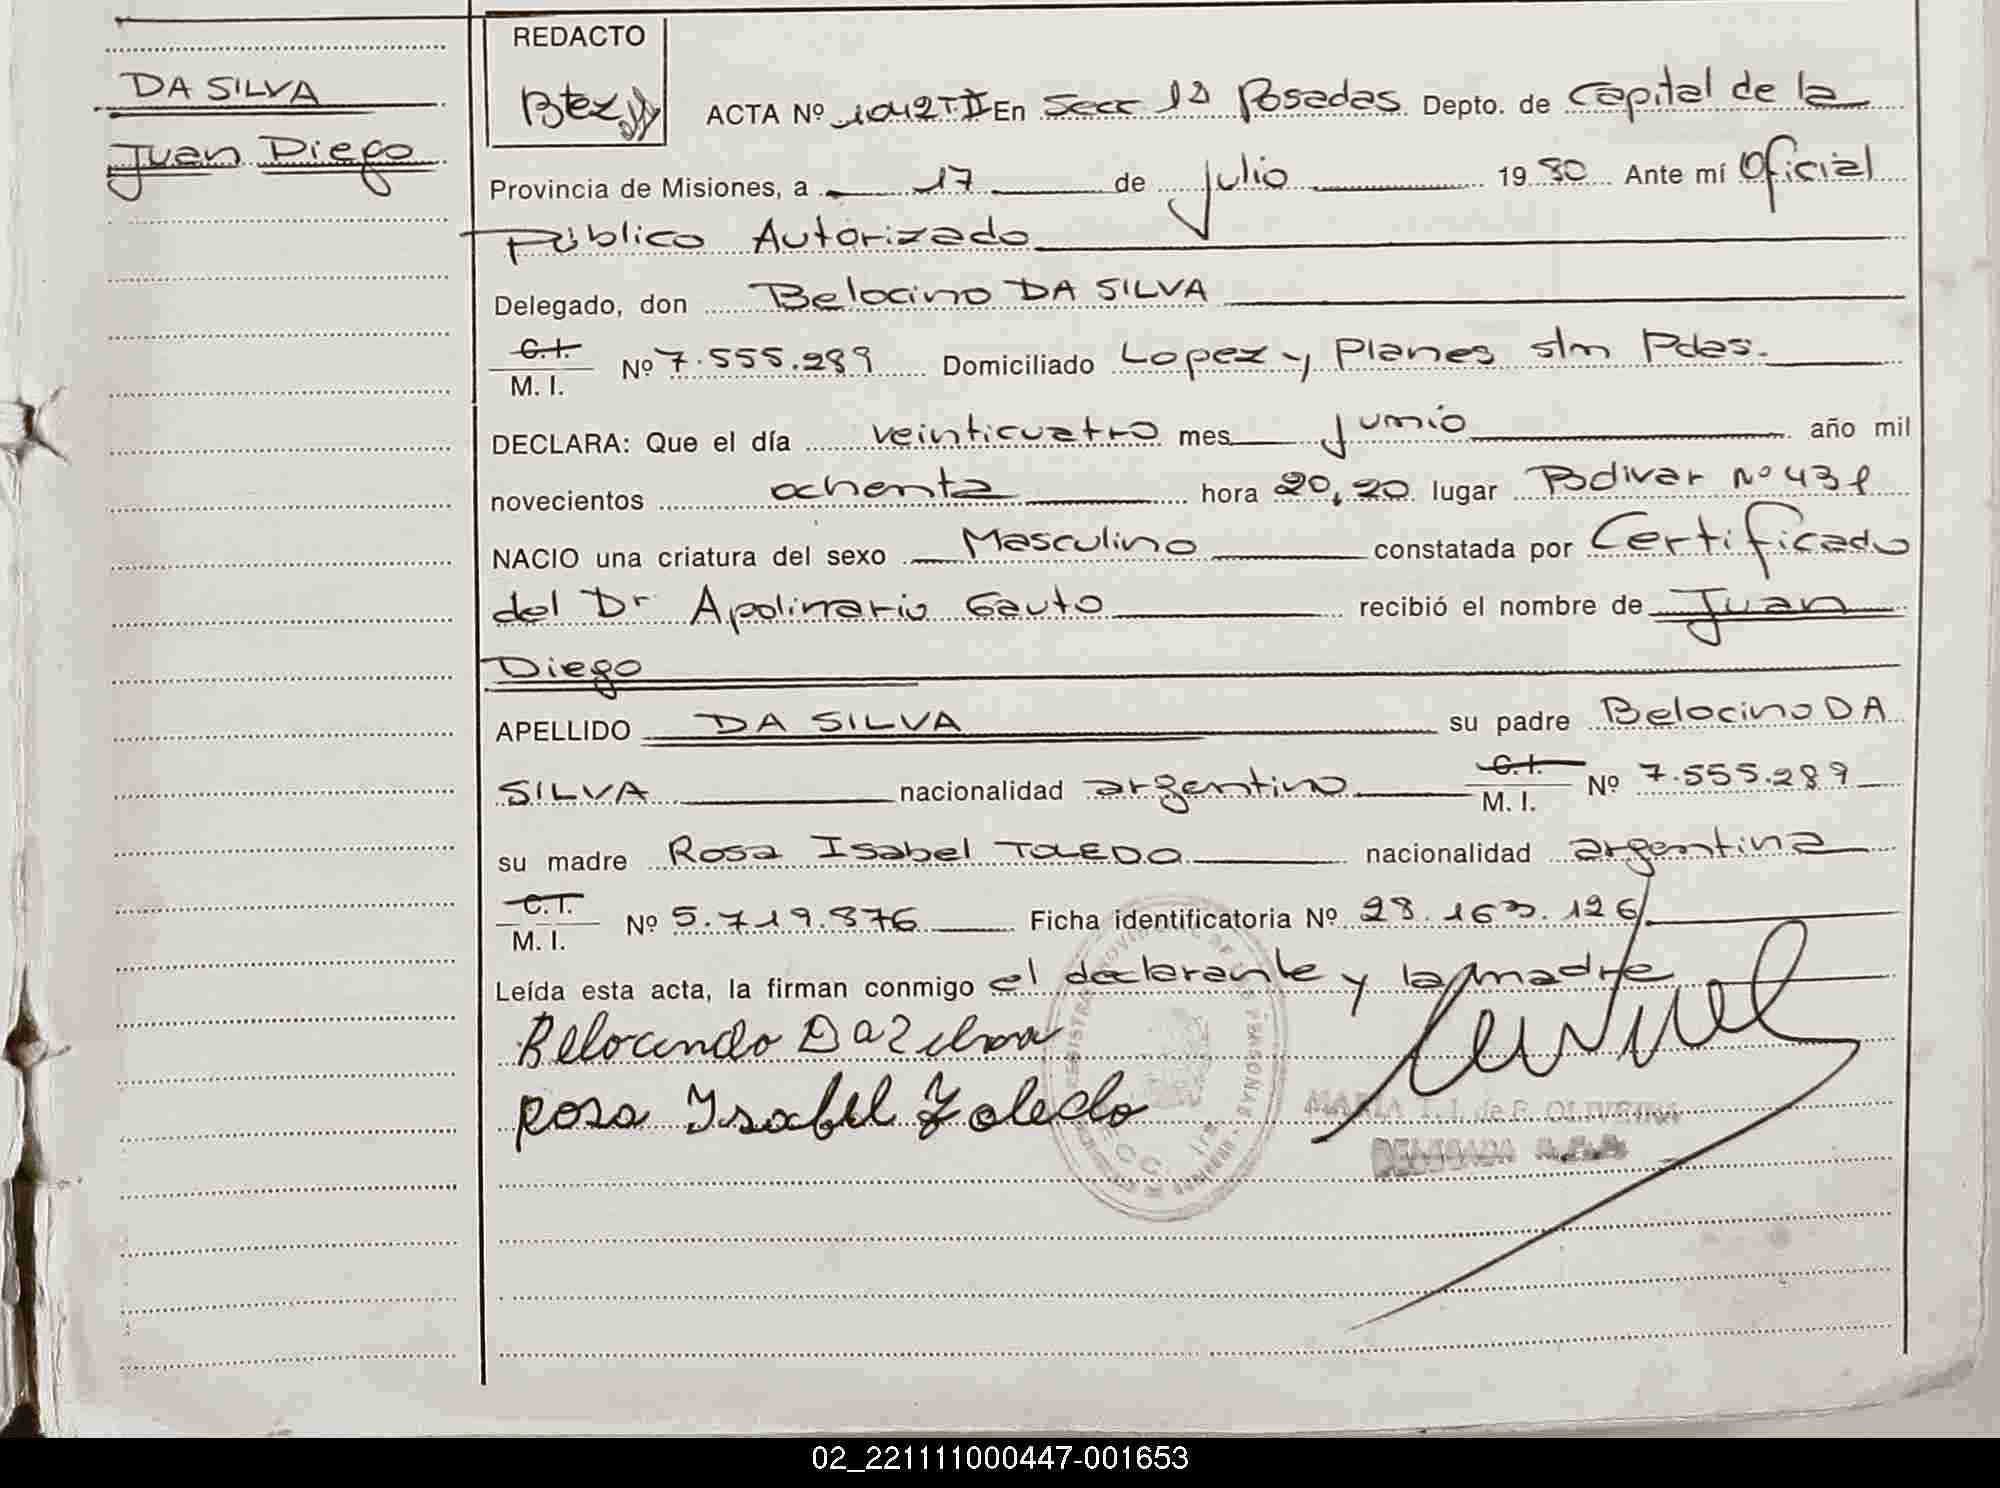 DA SILVA
Juan Diego
REDACTO
Btez
ACTA Nº 1042 T II En Secc 1ª Posadas Depto. de Capital de la
Provincia de Misiones, a 17 de julio 1980 Ante mí Oficial
Público Autorizado
Delegado, don Belocino DA SILVA
C.I. M. I. Nº 7.555.289 Domiciliado Lopez y Planes s/n Pdas.
DECLARA: Que el día veinticuatro mes junio año mil
novecientos ochenta hora 20,20 lugar Bolivar Nº 431
NACIO una criatura del sexo Masculino constatada por Certificado
del Dr Apolinario Gauto recibió el nombre de Juan
Diego
APELLIDO DA SILVA su padre Belocino DA
SILVA nacionalidad argentino C.I. M. I. Nº 7.555.289
su madre Rosa Isabel TOLEDO nacionalidad argentina
C.I. M. I. Nº 5.719.876 Ficha identificatoria Nº 28.163.126
Leída esta acta, la firman conmigo el declarante y la madre
Belocindo Da Silva
Rosa Isabel Toledo
MARIA T. I. de F. OLIVEIRA
DELEGADA
SECC. 1ra
02_221111000447-001653